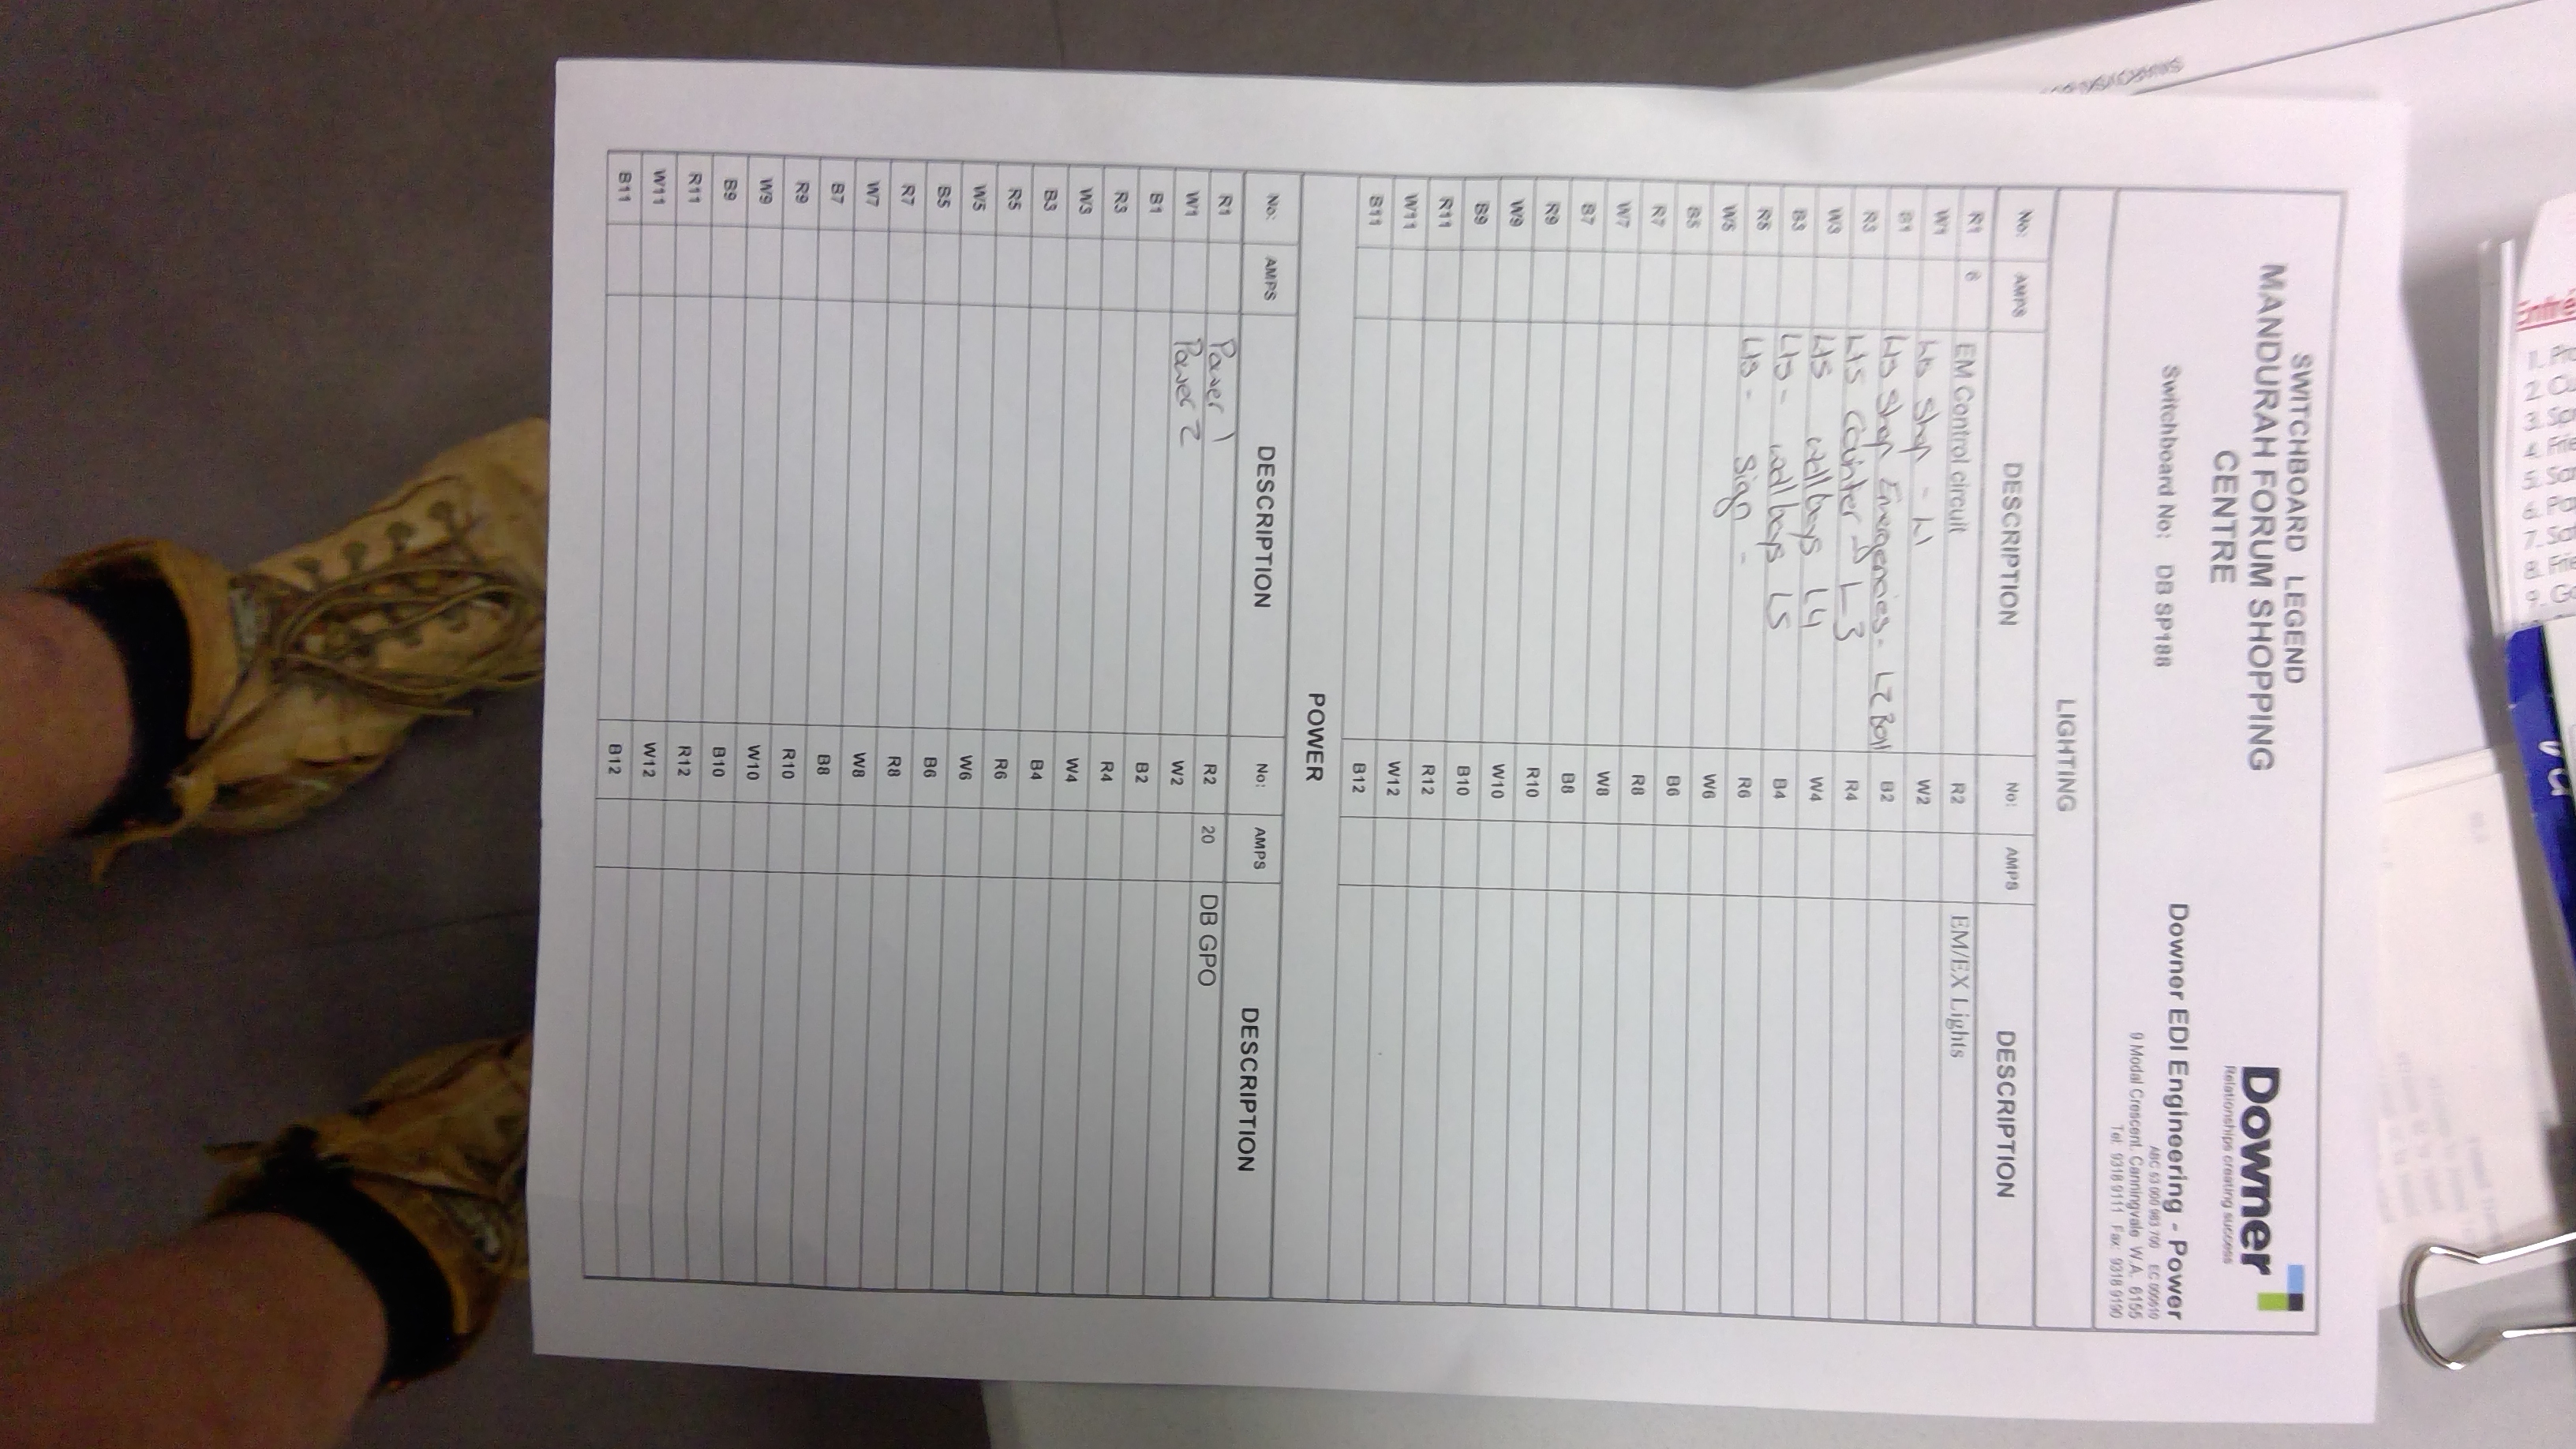 SWITCHBOARD LEGEND
MANDURAH FORUM SHOPPING
CENTRE
Downer
Relationships creating success
Switchboard No: DB SP188
Downer EDI Engineering - Power
9 Modal Crescent. Canningvale W.A. 6155
Tel: 9318 9111 Fax: 9318 9190
LIGHTING
No: AMPS DESCRIPTION No: AMPS DESCRIPTION
R1 6 EM Control circuit R2 EM/EX Lights
W1 Lts Shop - L1 W2
B1 Lts Shop Emergencies - L2 B2
R3 Lts Counter L3 R4
W3 Lts wall bays L4 W4
B3 Lts - wall bays L5 B4
R5 Lts - Sign - R6
W5 W6
B5 B6
R7 R8
W7 W8
B7 B8
R9 R10
W9 W10
B9 B10
R11 R12
W11 W12
B11 B12
POWER
No: AMPS DESCRIPTION No: AMPS DESCRIPTION
R1 Power 1 R2 20 DB GPO
W1 Power 2 W2
B1 B2
R3 R4
W3 W4
B3 B4
R5 R6
W5 W6
B5 B6
R7 R8
W7 W8
B7 B8
R9 R10
W9 W10
B9 B10
R11 R12
W11 W12
B11 B12